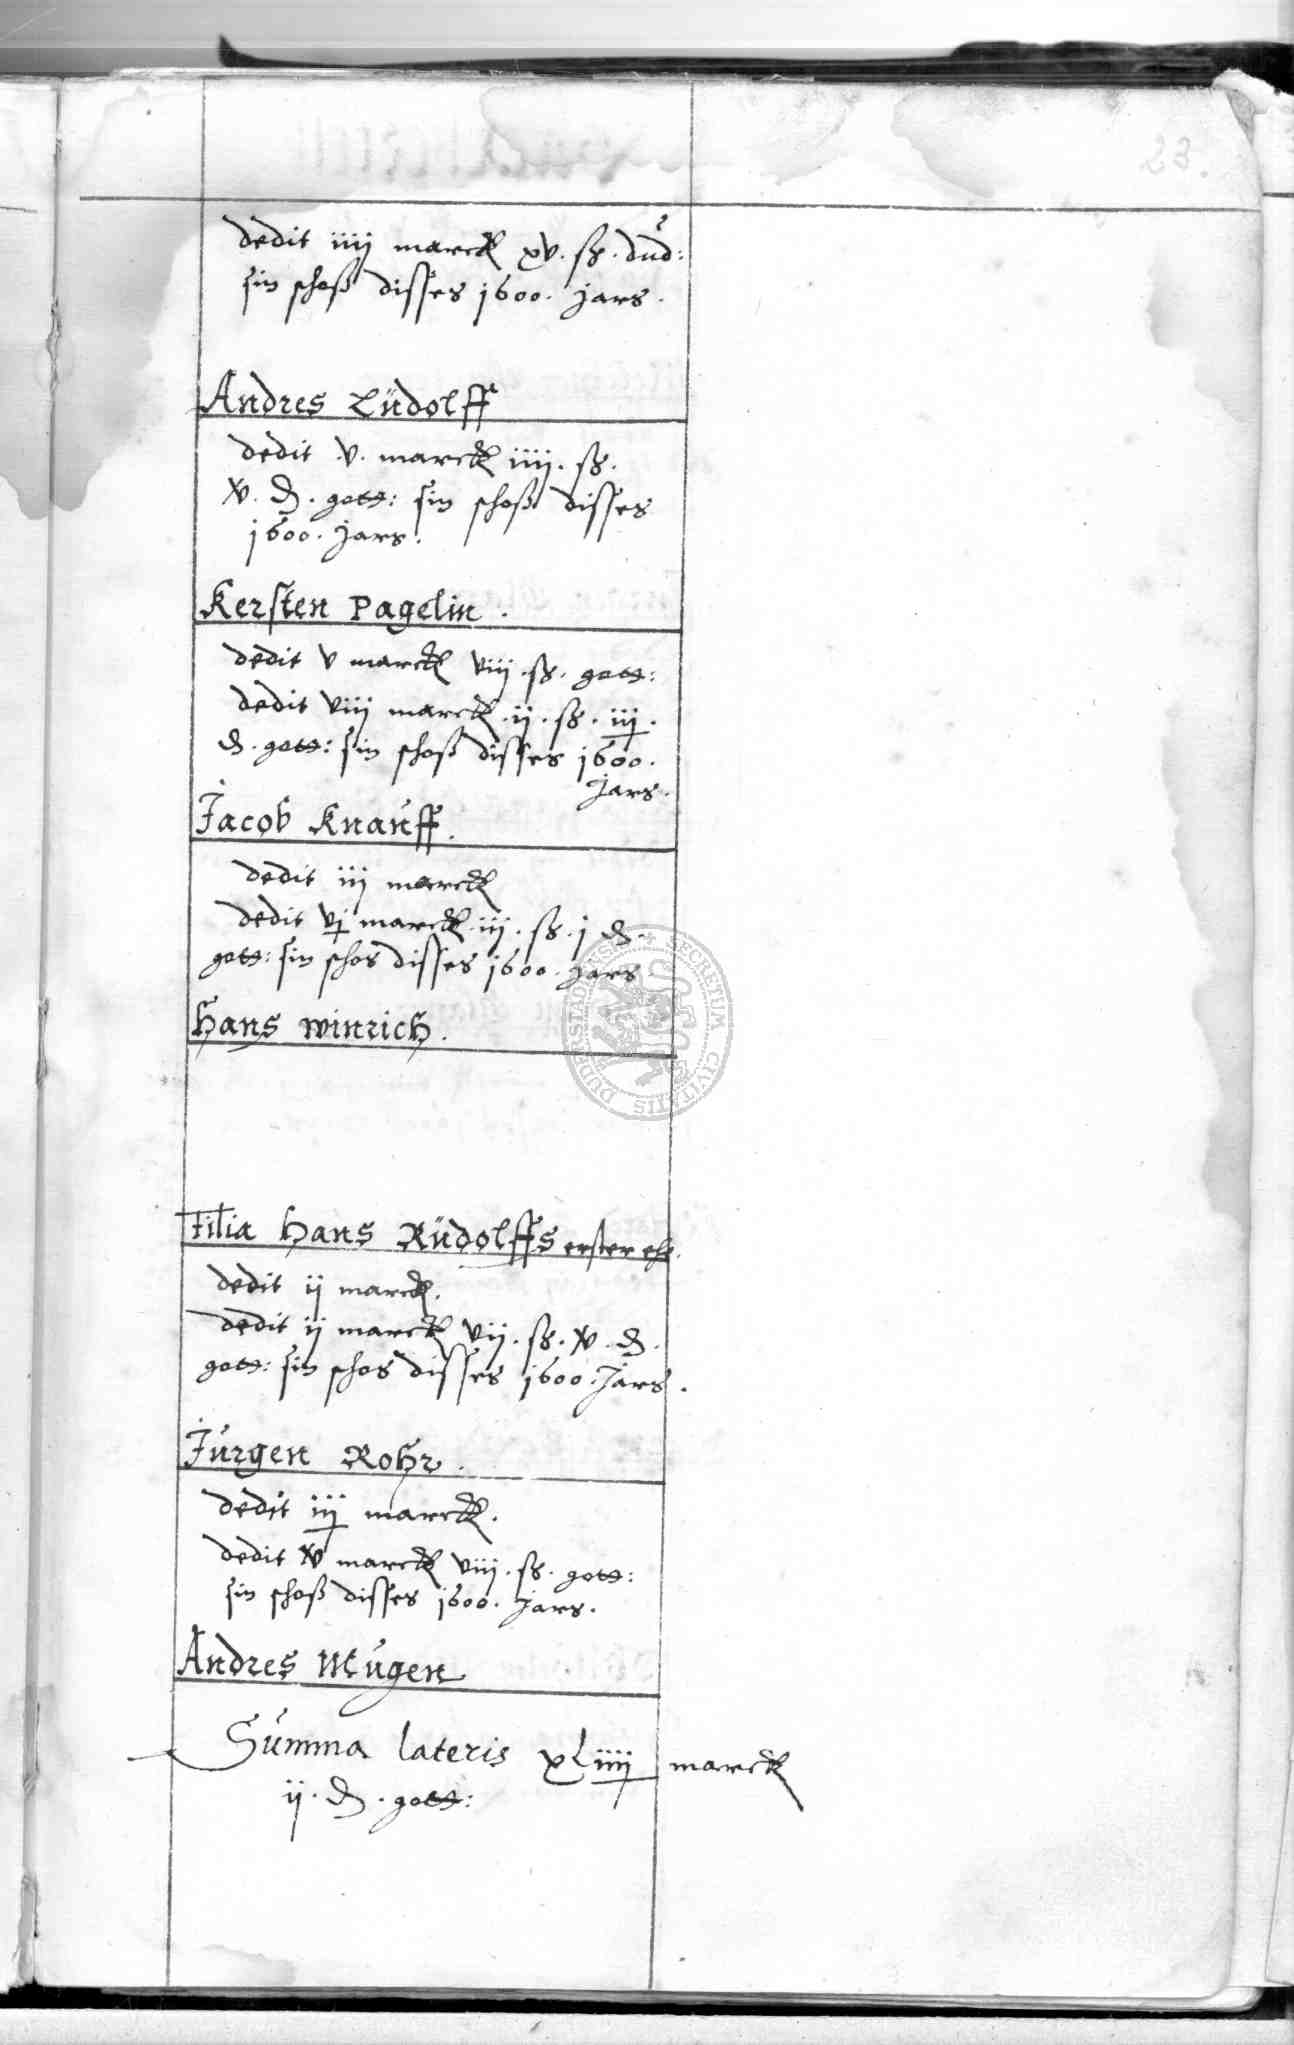 23.
dedit iiij marck xv. ß. dud:
sin schoß disses 1600. Jars.
Andres Lüdolff
dedit v. marck iiij. ß.
v. ₰. gott: sin schoß disses
1600. Jars.
Kersten Pagelin.
dedit v marck viij. ß. gott:
dedit viij marck. ij. ß. iij.
₰. gott: sin schoß disses 1600.
Jars.
Jacob Knauff.
dedit iij marck
dedit vj marck. iij. ß. j ₰.
gott: sin schos disses 1600. Jars
Hans Winrich.
SECRETUM CIVITATIS DUDERSTADIENSIS
Filia Hans Rüdolffs erster ehe.
dedit ij marck.
dedit ij marck vij. ß. v. ₰.
gott: sin schos disses 1600. Jars.
Jurgen Rohr.
dedit iij marck.
dedit v marck viij. ß. gott:
sin schoß disses 1600. Jars.
Andres Mugen
Summa lateris xLiiij marck
ij. ₰. gott: